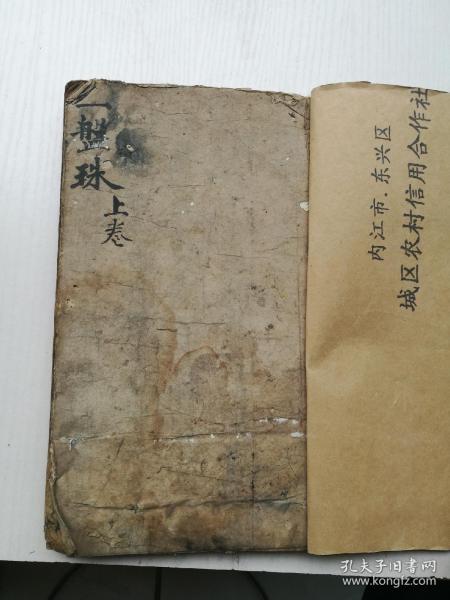 一盤珠
上卷
内江市·东兴区
城区农村信用合作社
孔夫子旧书网
www.kongfz.com